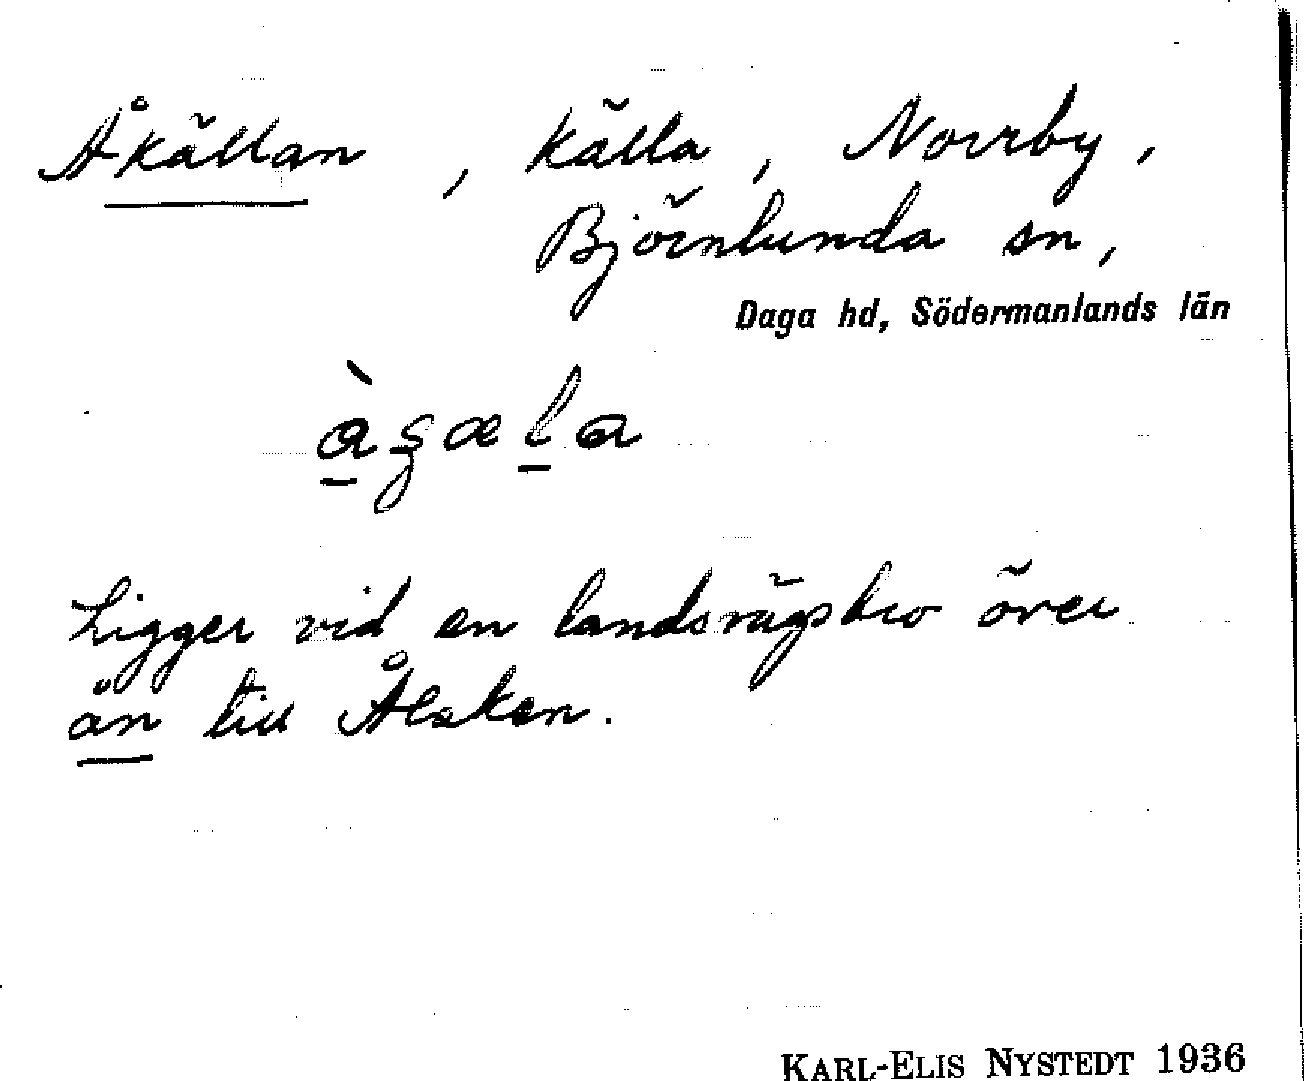 Åkällan, källa, Norrby,
Björnlunda sn,
Daga hd, Södermanlands län
Ligger vid en landsvägsbro över
ån till Ålsken.
KARL-ELIS NYSTEDT 1936